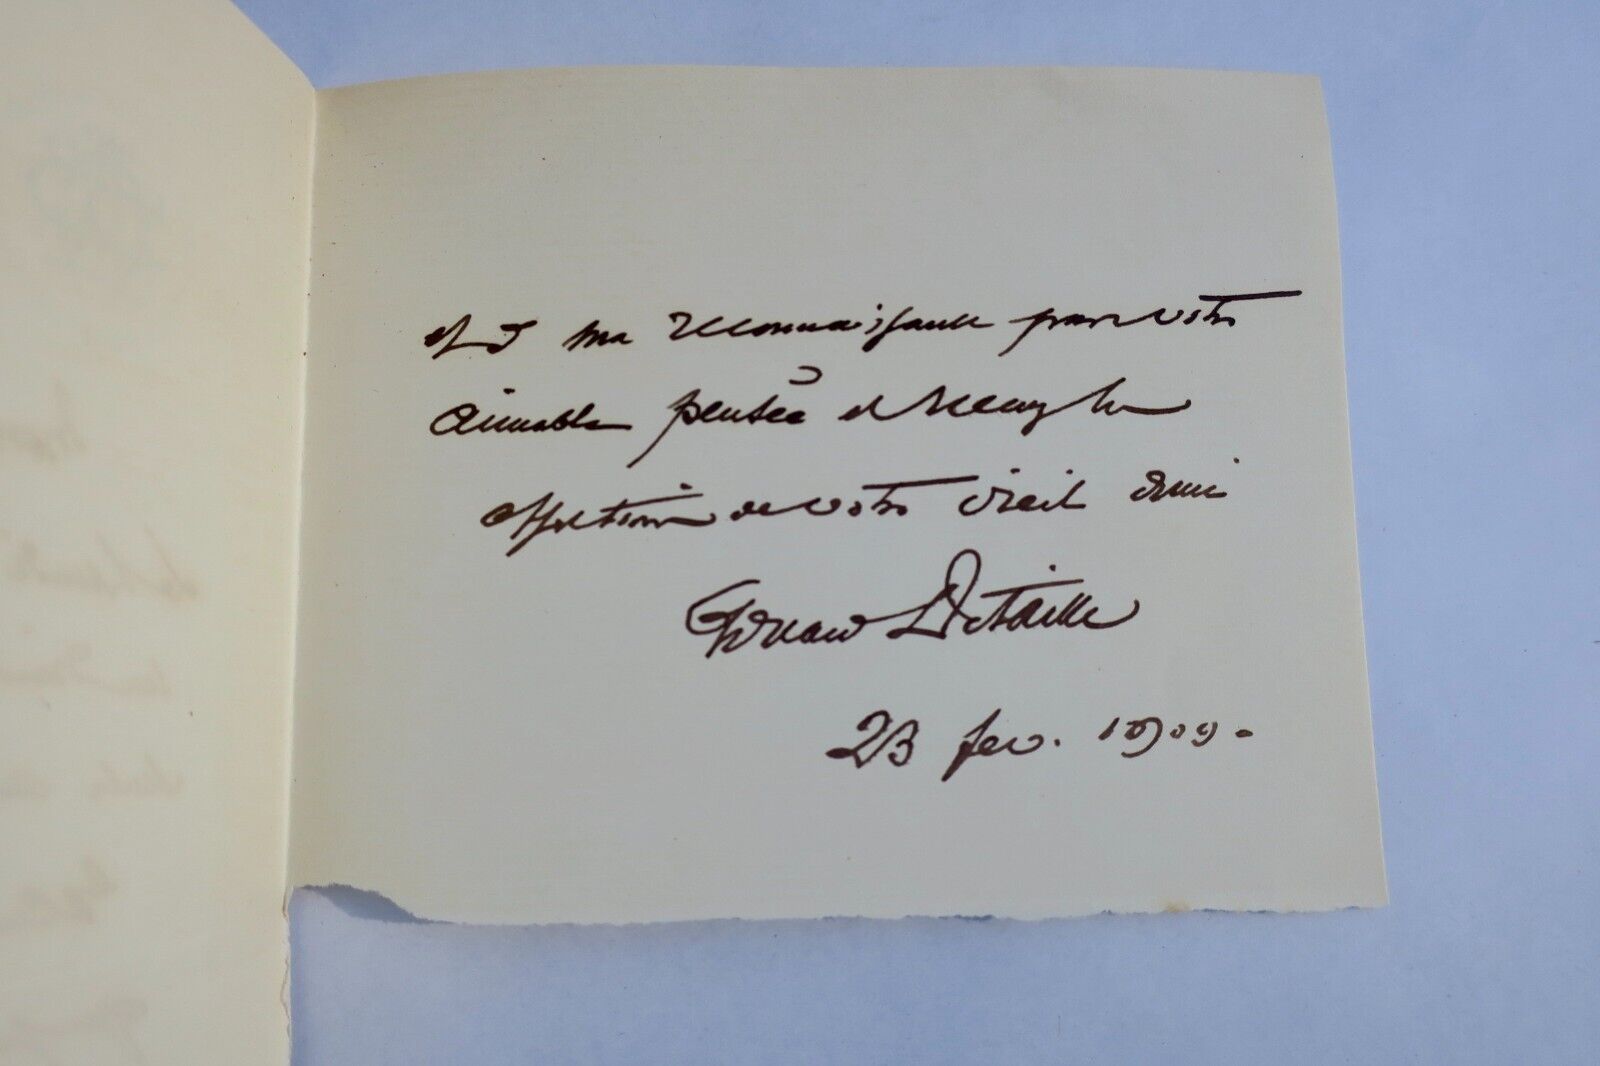 et de ma reconnaissance pour votre
aimable pensée et
affection de votre vieil ami
Edouard Detaille
23 fev. 1909.